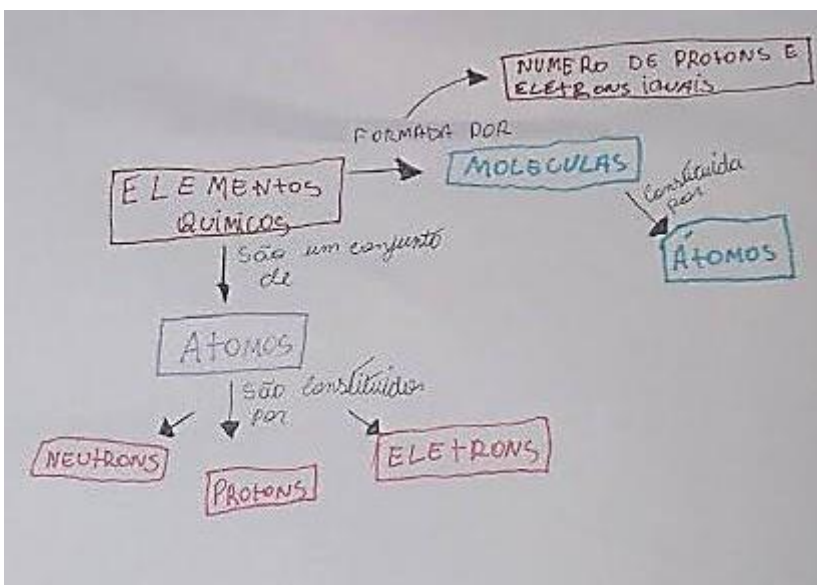 NUMERO DE PROTONS E
ELETRONS IGUAIS
FORMADA POR
MOLECULAS
ELEMENTOS
QUÍMICOS
Constituida
por
ÁTOMOS
são um conjunto
de
ATOMOS
são Constituidos
por
NEUTRONS
PROTONS
ELETRONS